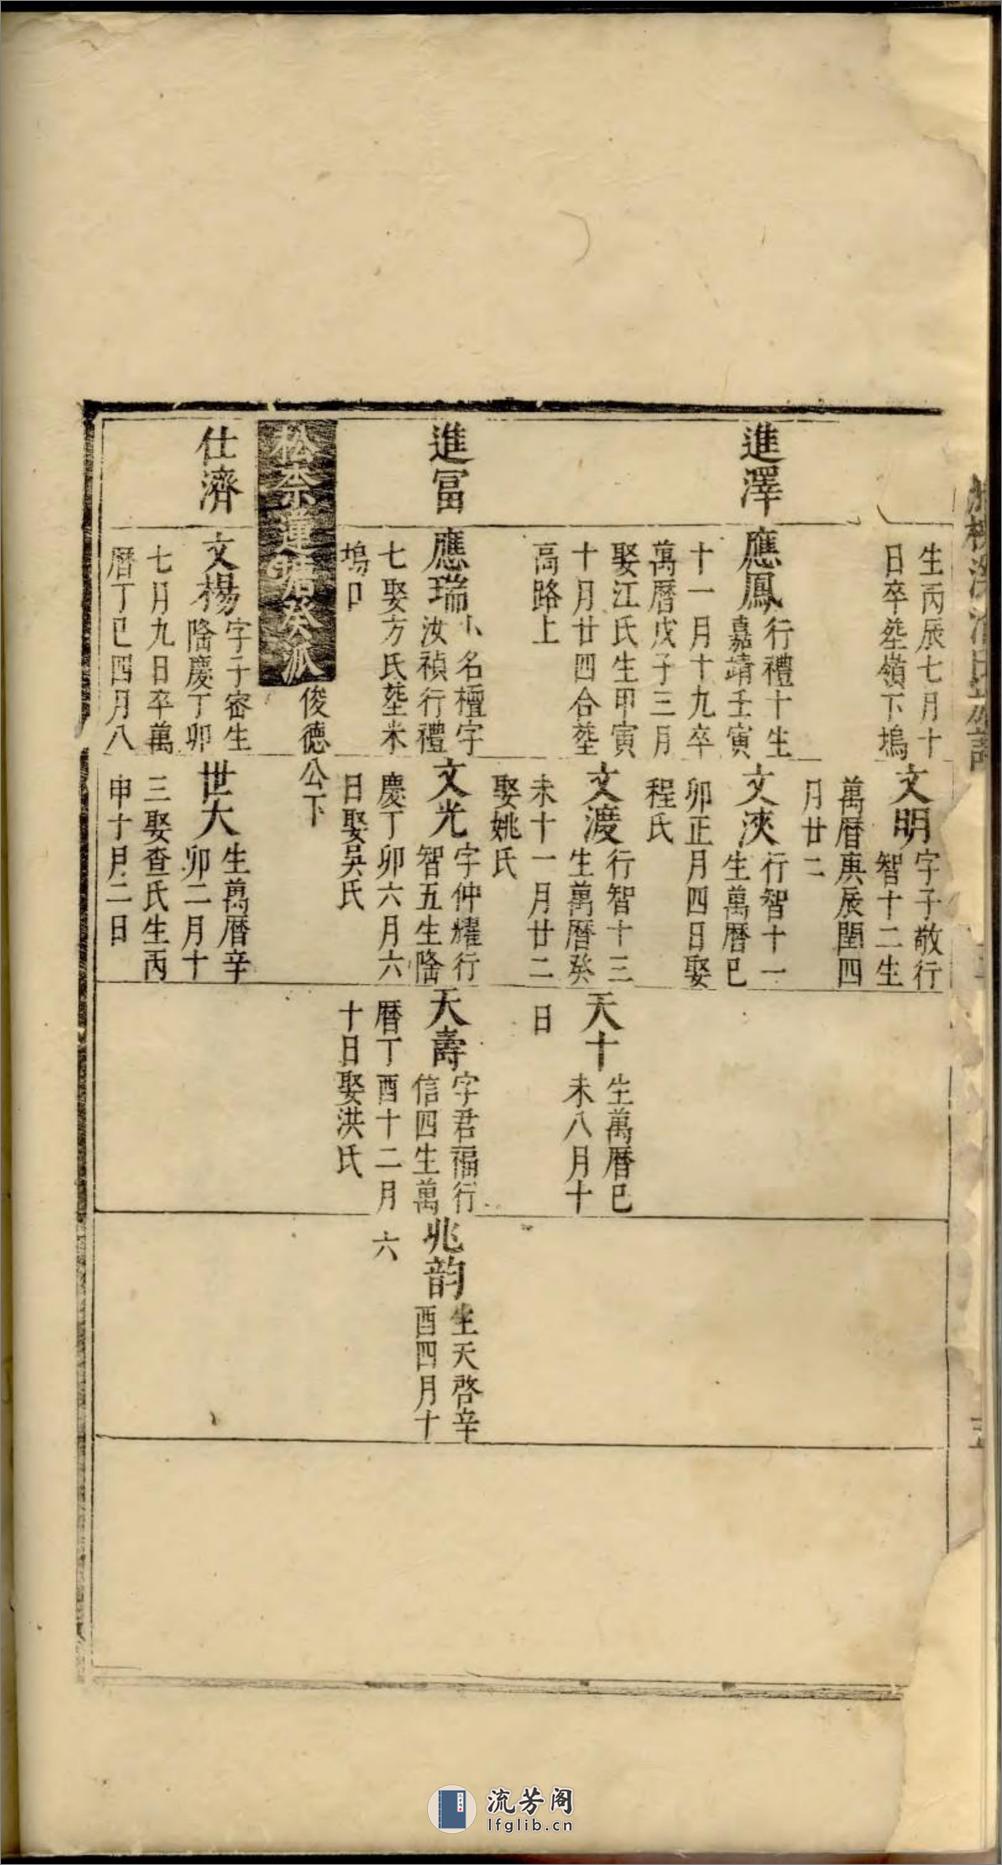 生丙辰七月十
日卒塟嶺下塢
文明
字子敬行
智十二生
萬暦庚辰閏四
月廿二
進澤
應鳳
行禮十生
嘉靖壬寅
十一月十九卒
萬暦戊子三月
娶江氏生甲寅
十月廿四合塟
高路上
文浹
行智十一
生萬暦己
卯正月四日娶
程氏
文渡
行智十三
生萬暦癸
未十一月廿二
娶姚氏
天十
生萬暦己
未八月十
日
進冨
應瑞
小名檀字
汝禎行禮
七娶方氏塟米
塢口
文光
字仲耀行
智五生隆
慶丁卯六月六
日娶吴氏
天壽
字君福行
信四生萬
暦丁酉十二月
十日娶洪氏
兆韵
生天啓辛
酉四月十
六
松柰蓮塘癸派
俊德公下
仕濟
文楊
字子密生
隆慶丁卯
七月九日卒萬
暦丁巳四月八
世大
生萬暦辛
卯二月十
三娶查氏生丙
申十月二日
流芳阁
lfglib.cn